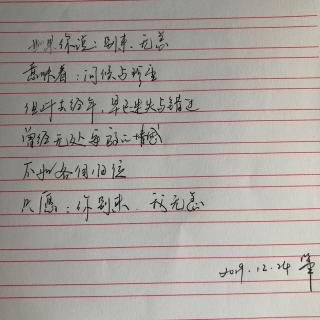 如果你说：别来、无恙
意味着：问候与珍重
但时去经年，早已迷失与错过
曾经无处安放的情感
不如各自归位
只愿：你别来、我无恙
2019.12.24 笔